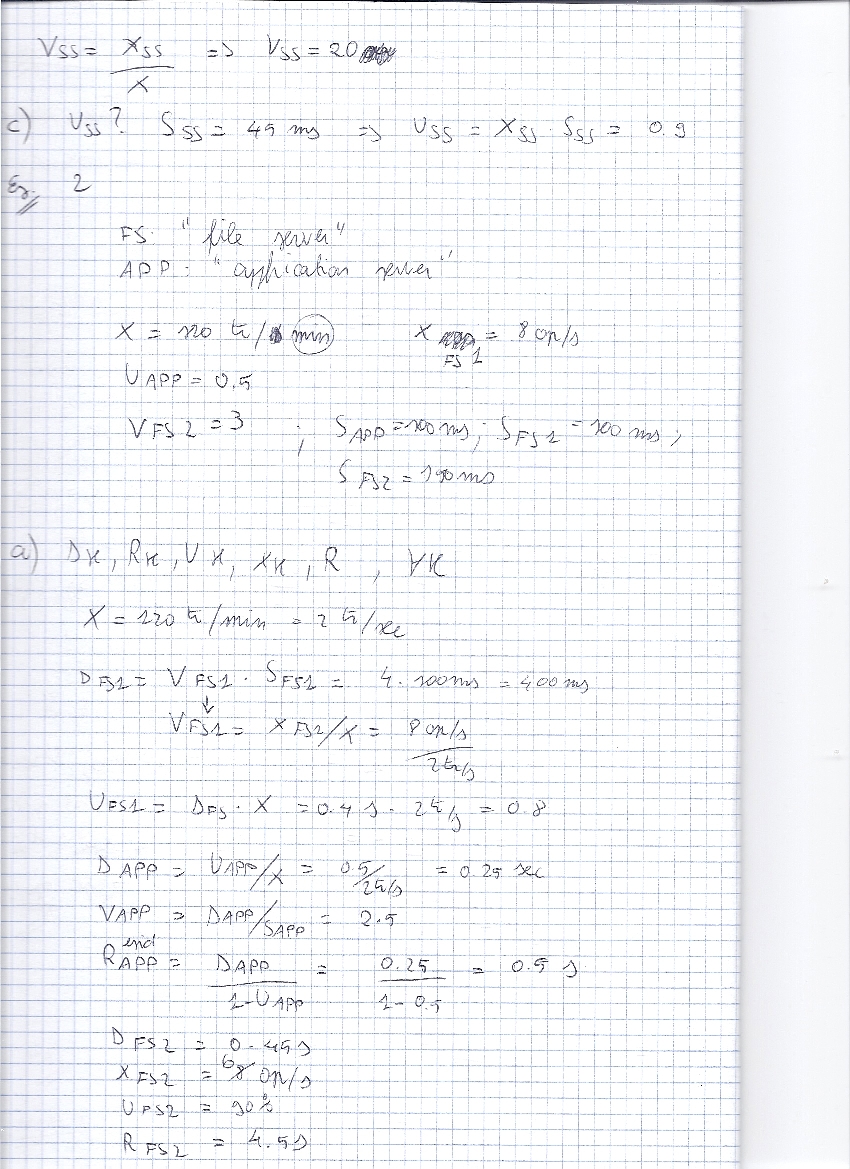 VSS = XSS / X => VSS = 20
c) USS? SSS = 45 ms => USS = XSS · SSS = 0.9
Es. 2
FS: "file server"
APP: "application server"
X = 120 tr/min X FS1 = 8 op/s
UAPP = 0.5
VFS2 = 3 ; SAPP = 100 ms; SFS1 = 100 ms;
SFS2 = 150 ms
a) DK, RK, UK, XK, R, ∀K
X = 120 tr/min = 2 tr/sec
DFS1 = VFS1 · SFS1 = 4 · 100ms = 400 ms
↓
VFS1 = XFS1/X = 8 op/s / 2tr/s
UFS1 = DFS · X = 0.4 s · 2tr/s = 0.8
DAPP = UAPP/X = 0.5/2tr/s = 0.25 sec
VAPP = DAPP/SAPP = 2.5
RAPP = DAPP / 1-UAPP = 0.25 / 1-0.5 = 0.5 s
DFS2 = 0.45s
XFS2 = 6 op/s
UFS2 = 90%
RFS2 = 4.5s